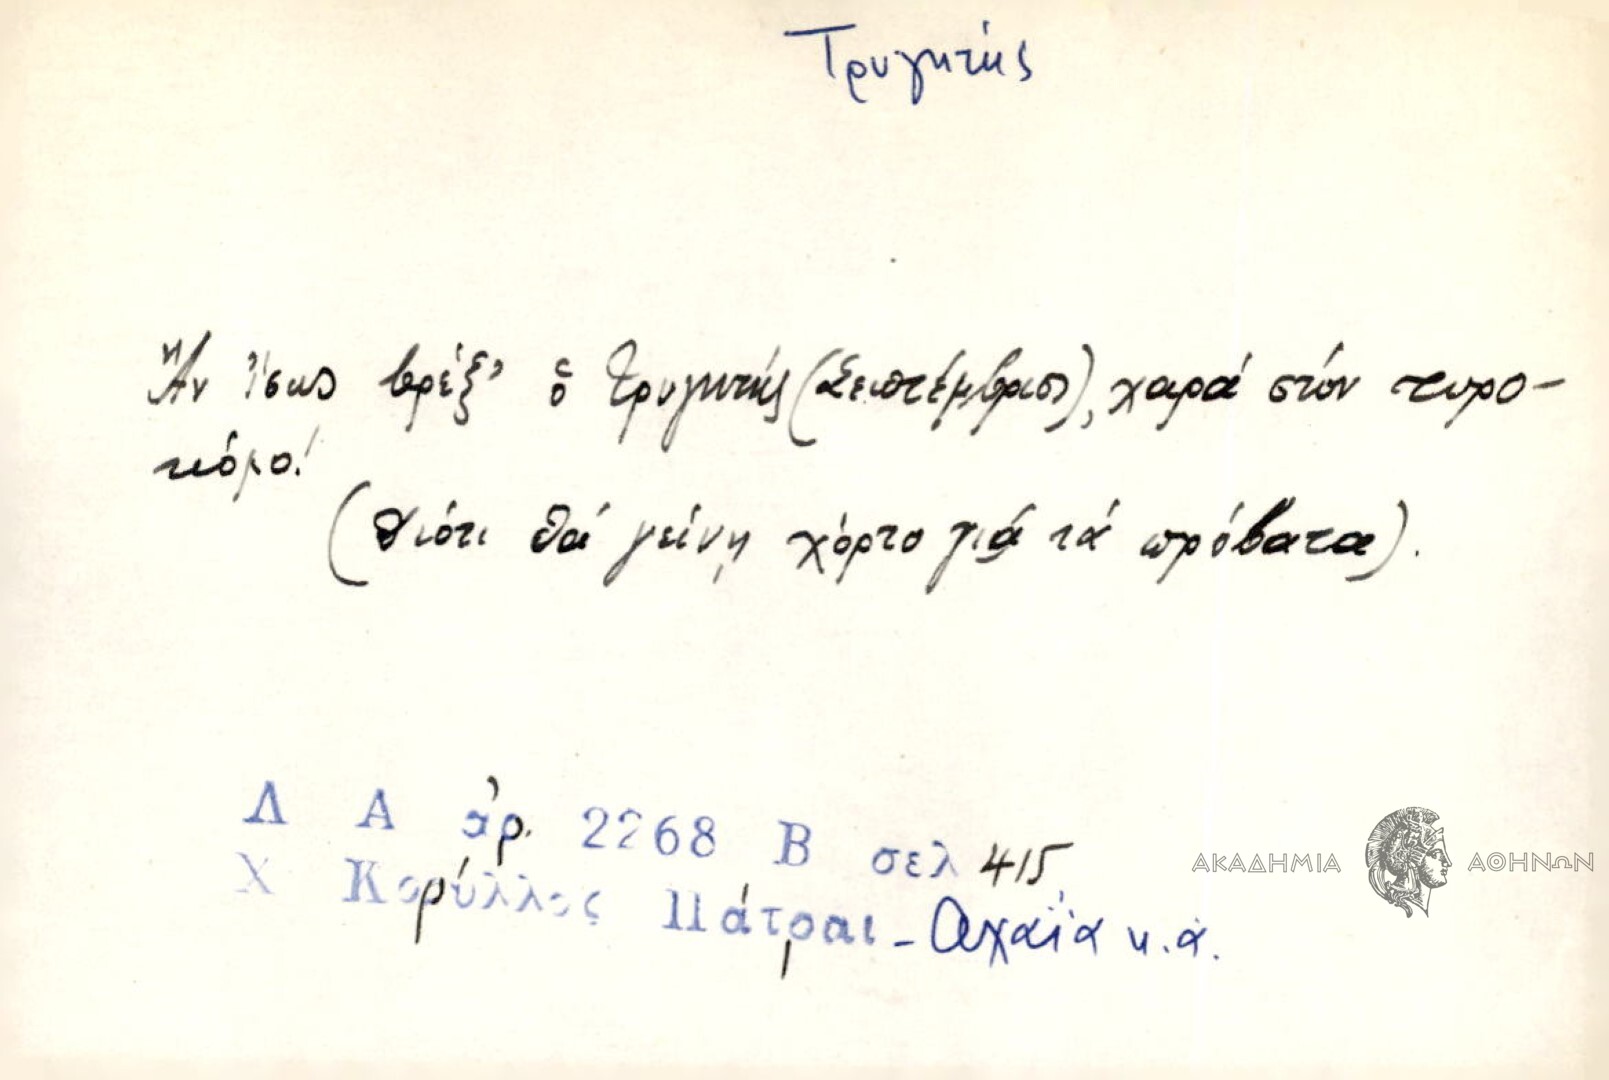 Τρυγητής
Ἄν ἴσως βρέξ' ὁ Τρυγητής (Σεπτέμβριος), χαρά στόν τυρο-
κόμο!
(Διότι θά γείνῃ χόρτο γιά τά πρόβατα).
Λ Α ἀρ. 2268 Β σελ 415
Χ Κορύλλος Πάτραι - Αχαΐα κ.ἀ.
ΑΚΑΔΗΜΙΑ ΑΘΗΝΩΝ